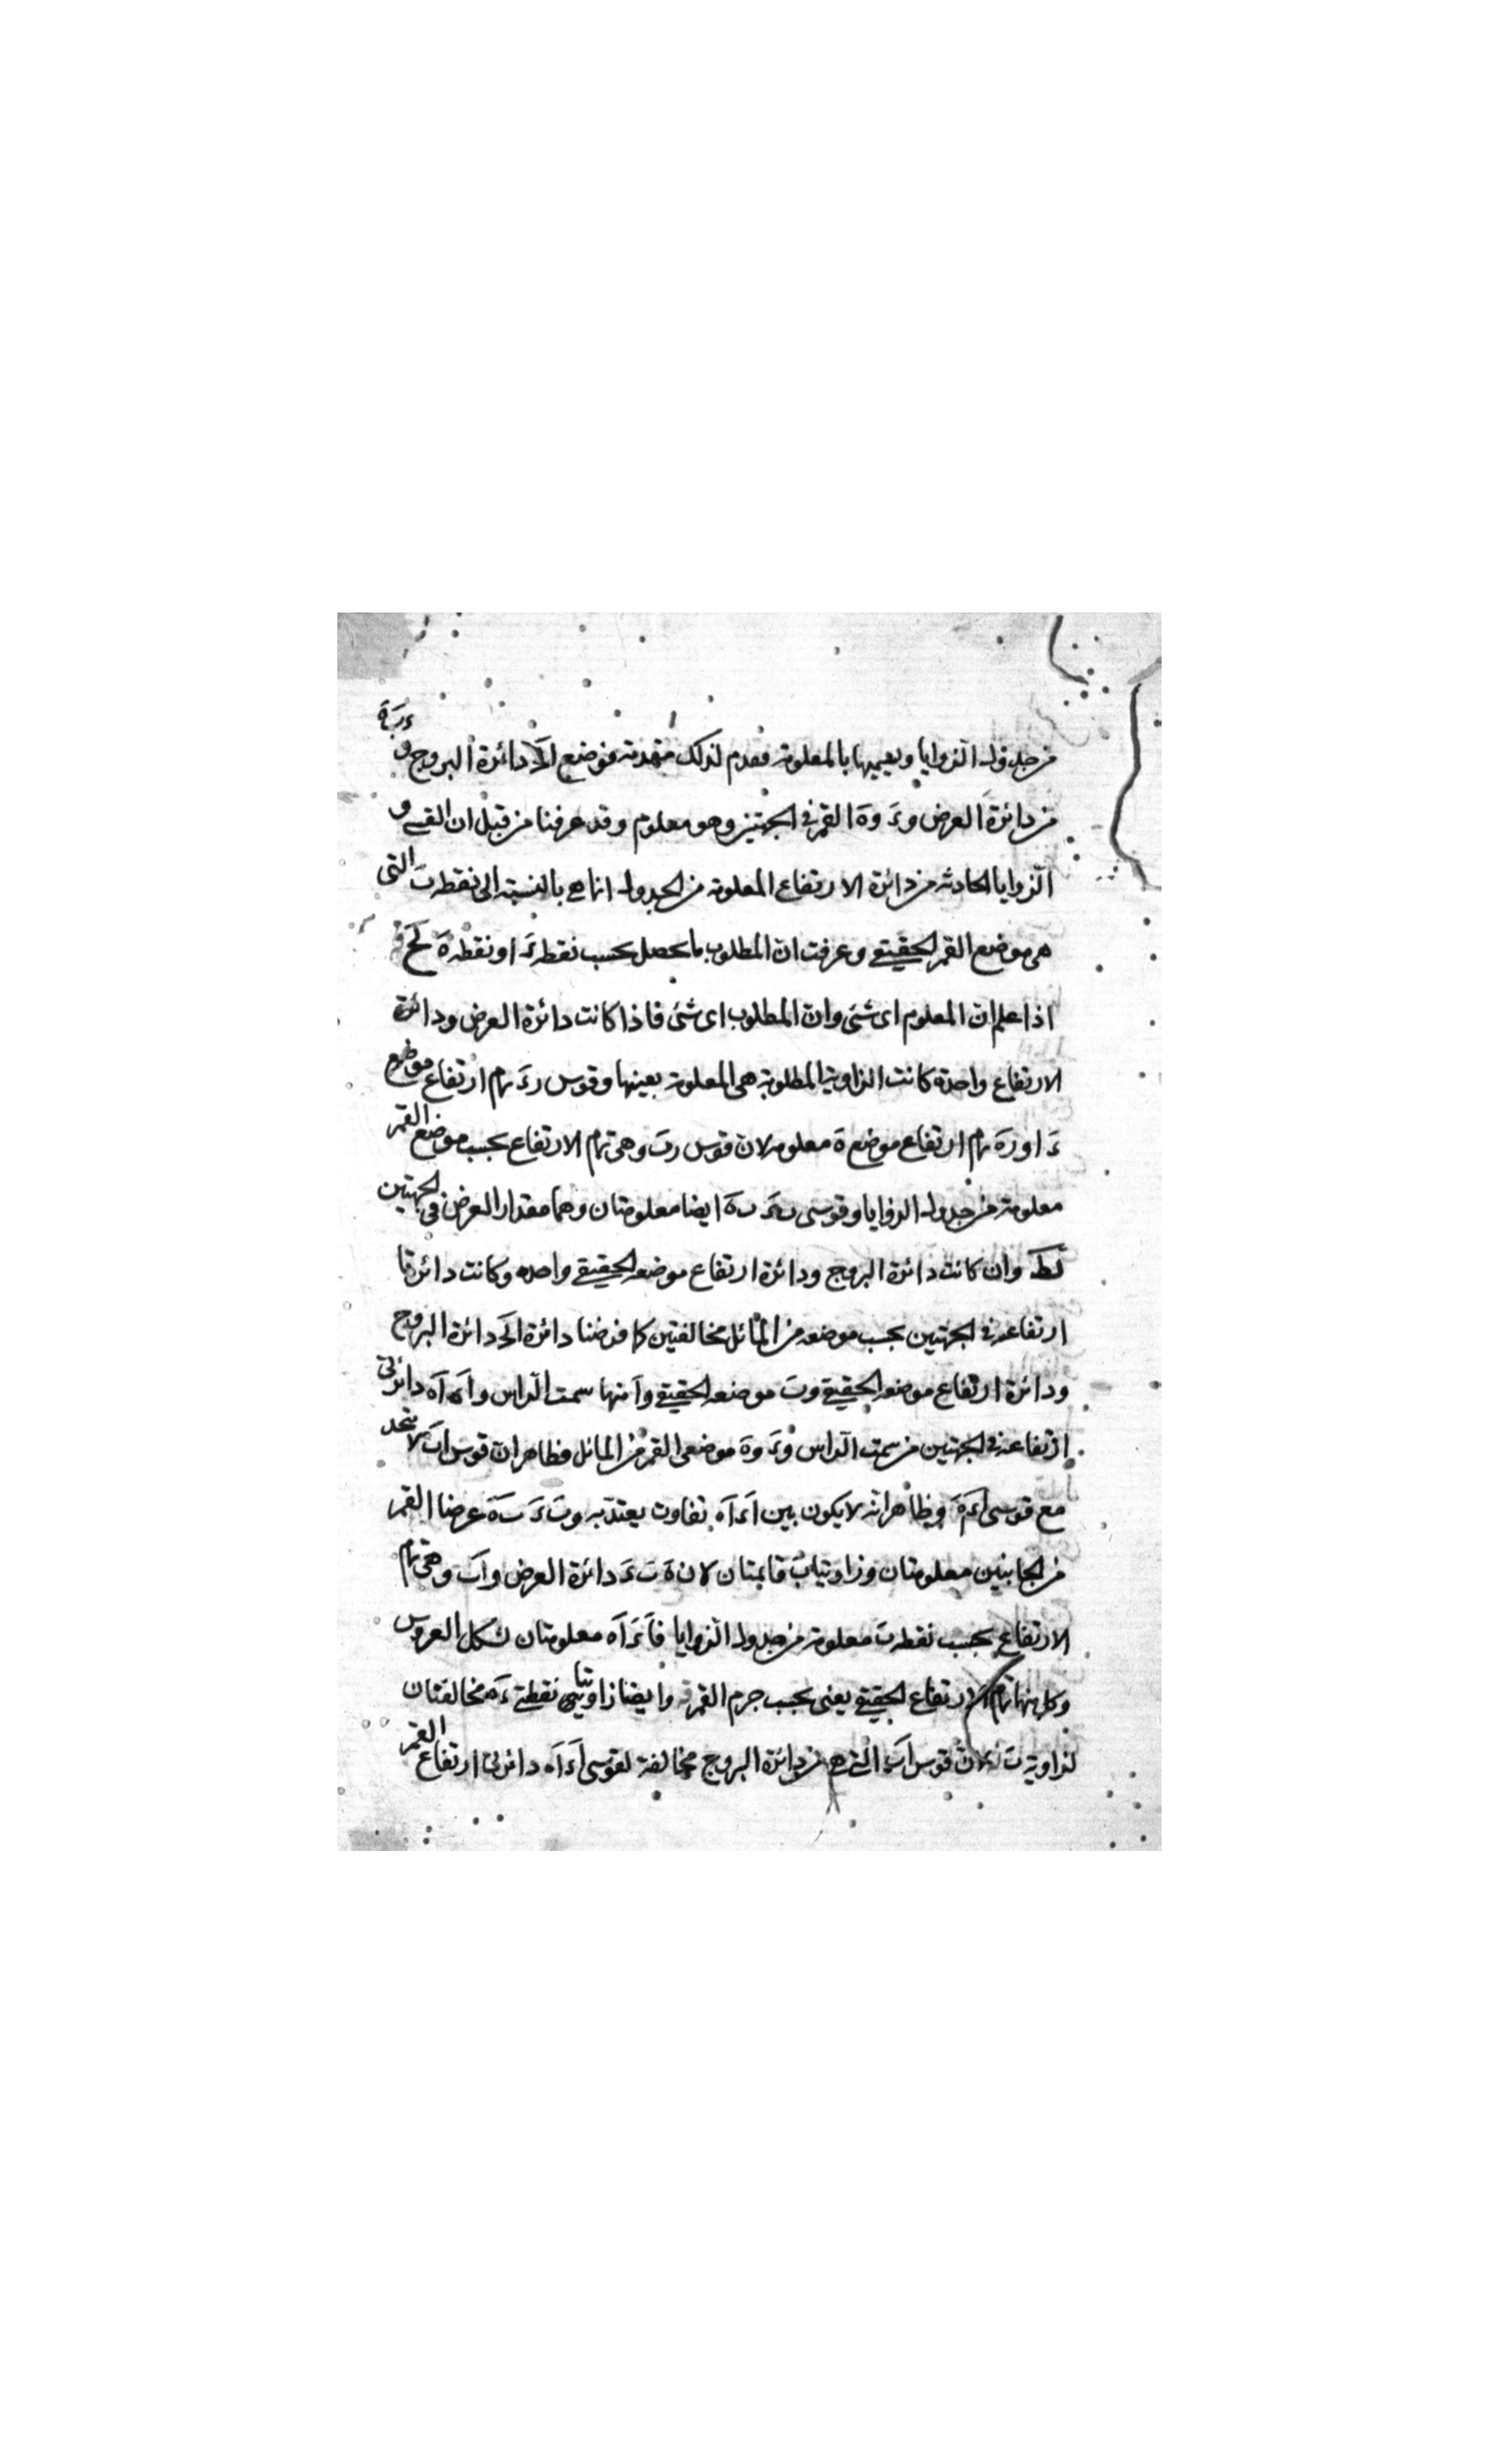 من جدول الزوايا ويعيها بالمعلومة فقدم لذلك مقدمة فوضع ا دائرة البروج و ءبه
من دائرة العرض و ءَ و هَ القمر في الجهتين وهو معلوم وقد عرفنا من قبل ان القسي و
الزوايا الحادثه من دائرة الارتفاع المعلومة من الجدول انما هي بالنسبة الى نقطة بَ التى
هى موضع القمر الحقيقي وعرفت ان المطلوب ما يحصل بحسب نقطة ءَ او نقطة هَ لح
اذا علم ان المعلوم اى شئ وان المطلوب اى شئ فاذا كانت دائرة العرض ودائرة
الارتفاع واحدة كانت الزاوية المطلوبة هى المعلومة بعينها وقوس رءَ تمام ارتفاع موضع
ءَ او رهَ تمام ارتفاع موضع هَ معلومة لان قوس ربَ وهى تمام الارتفاع بحسب موضع القمر
معلومة من جدول الزوايا وقوسى بءَ بهَ ايضا معلومتان وهما مقدار العرض فى الجهتين
لط وان كانت دائرة البروج ودائرة ارتفاع موضعه الحقيقي واحده وكانت دائرتا
ارتفاعه في الجهتين بحسب موضعه من المائل مخالفتين كما فرضنا دائرة ا دائرة البروج
ودائرة ارتفاع موضعه الحقيقي و بَ موضعه الحقيقي و اَ منها سمت الراس و اءَ اهَ دائرتى
ارتفاعه في الجهتين من سمت الراس و ءَ و هَ موضعى القمر من المائل فظاهر ان قوس ابَ لا يتحد
مع قوسى اءَ هَ وظاهر انه لا يكون بين اءَ اهَ تفاوت يعتد به و بَءَ بَهَ عرضا القمر
من الجانبين معلومتان وزاويتا بَ قايمتان لان هَ بَ ءَ دائرة العرض و ابَ وهى تمام
الارتفاع بحسب نقطة بَ معلومة من جدول الزوايا فاءَ اهَ معلومتان بشكل العروس
وكل منها تمام الارتفاع الحقيقي يعنى بحسب جرم القمر وايضا زاويتا نقطتى ءَ هَ مخالفتان
لزاوية بَ لان قوس ابَ التى هى من دائرة البروج مخالفة لقوسى اءَ اهَ دائرتى ارتفاع القمر